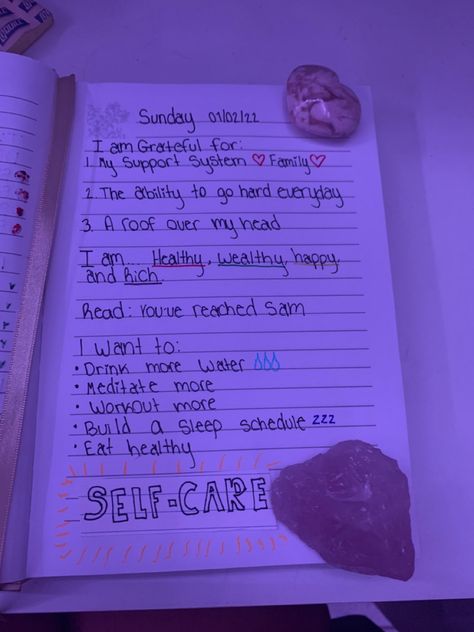 Sunday 01/02/22
I am Grateful for:
1. My Support System Family
2. The ability to go hard everyday
3. A roof over my head
I am.... Healthy, wealthy, happy,
and Rich.
Read: You've reached Sam
I want to:
• Drink more water
• Meditate more
• Workout more
• Build a sleep schedule zzz
• Eat healthy
SELF-CARE